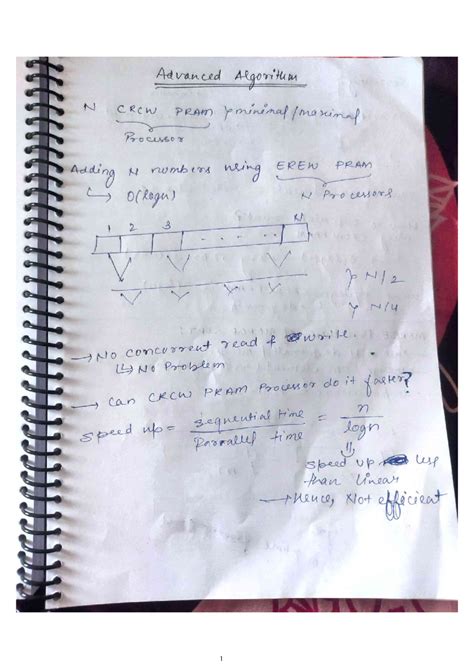 Advanced Algorithm
N CRCW PRAM → minimal/maximal
Processor
Adding N numbers using EREW PRAM
↳ O(logn) N Processors
1 2 3 . . . . . N
} N/2
} N/4
→ No concurrent read & write
↳ No Problem
→ Can CRCW PRAM Processor do it faster?
Speed up = sequential time / Parallel time = n / logn
⇓
Speed up less
than linear
→ Hence, Not efficient
1